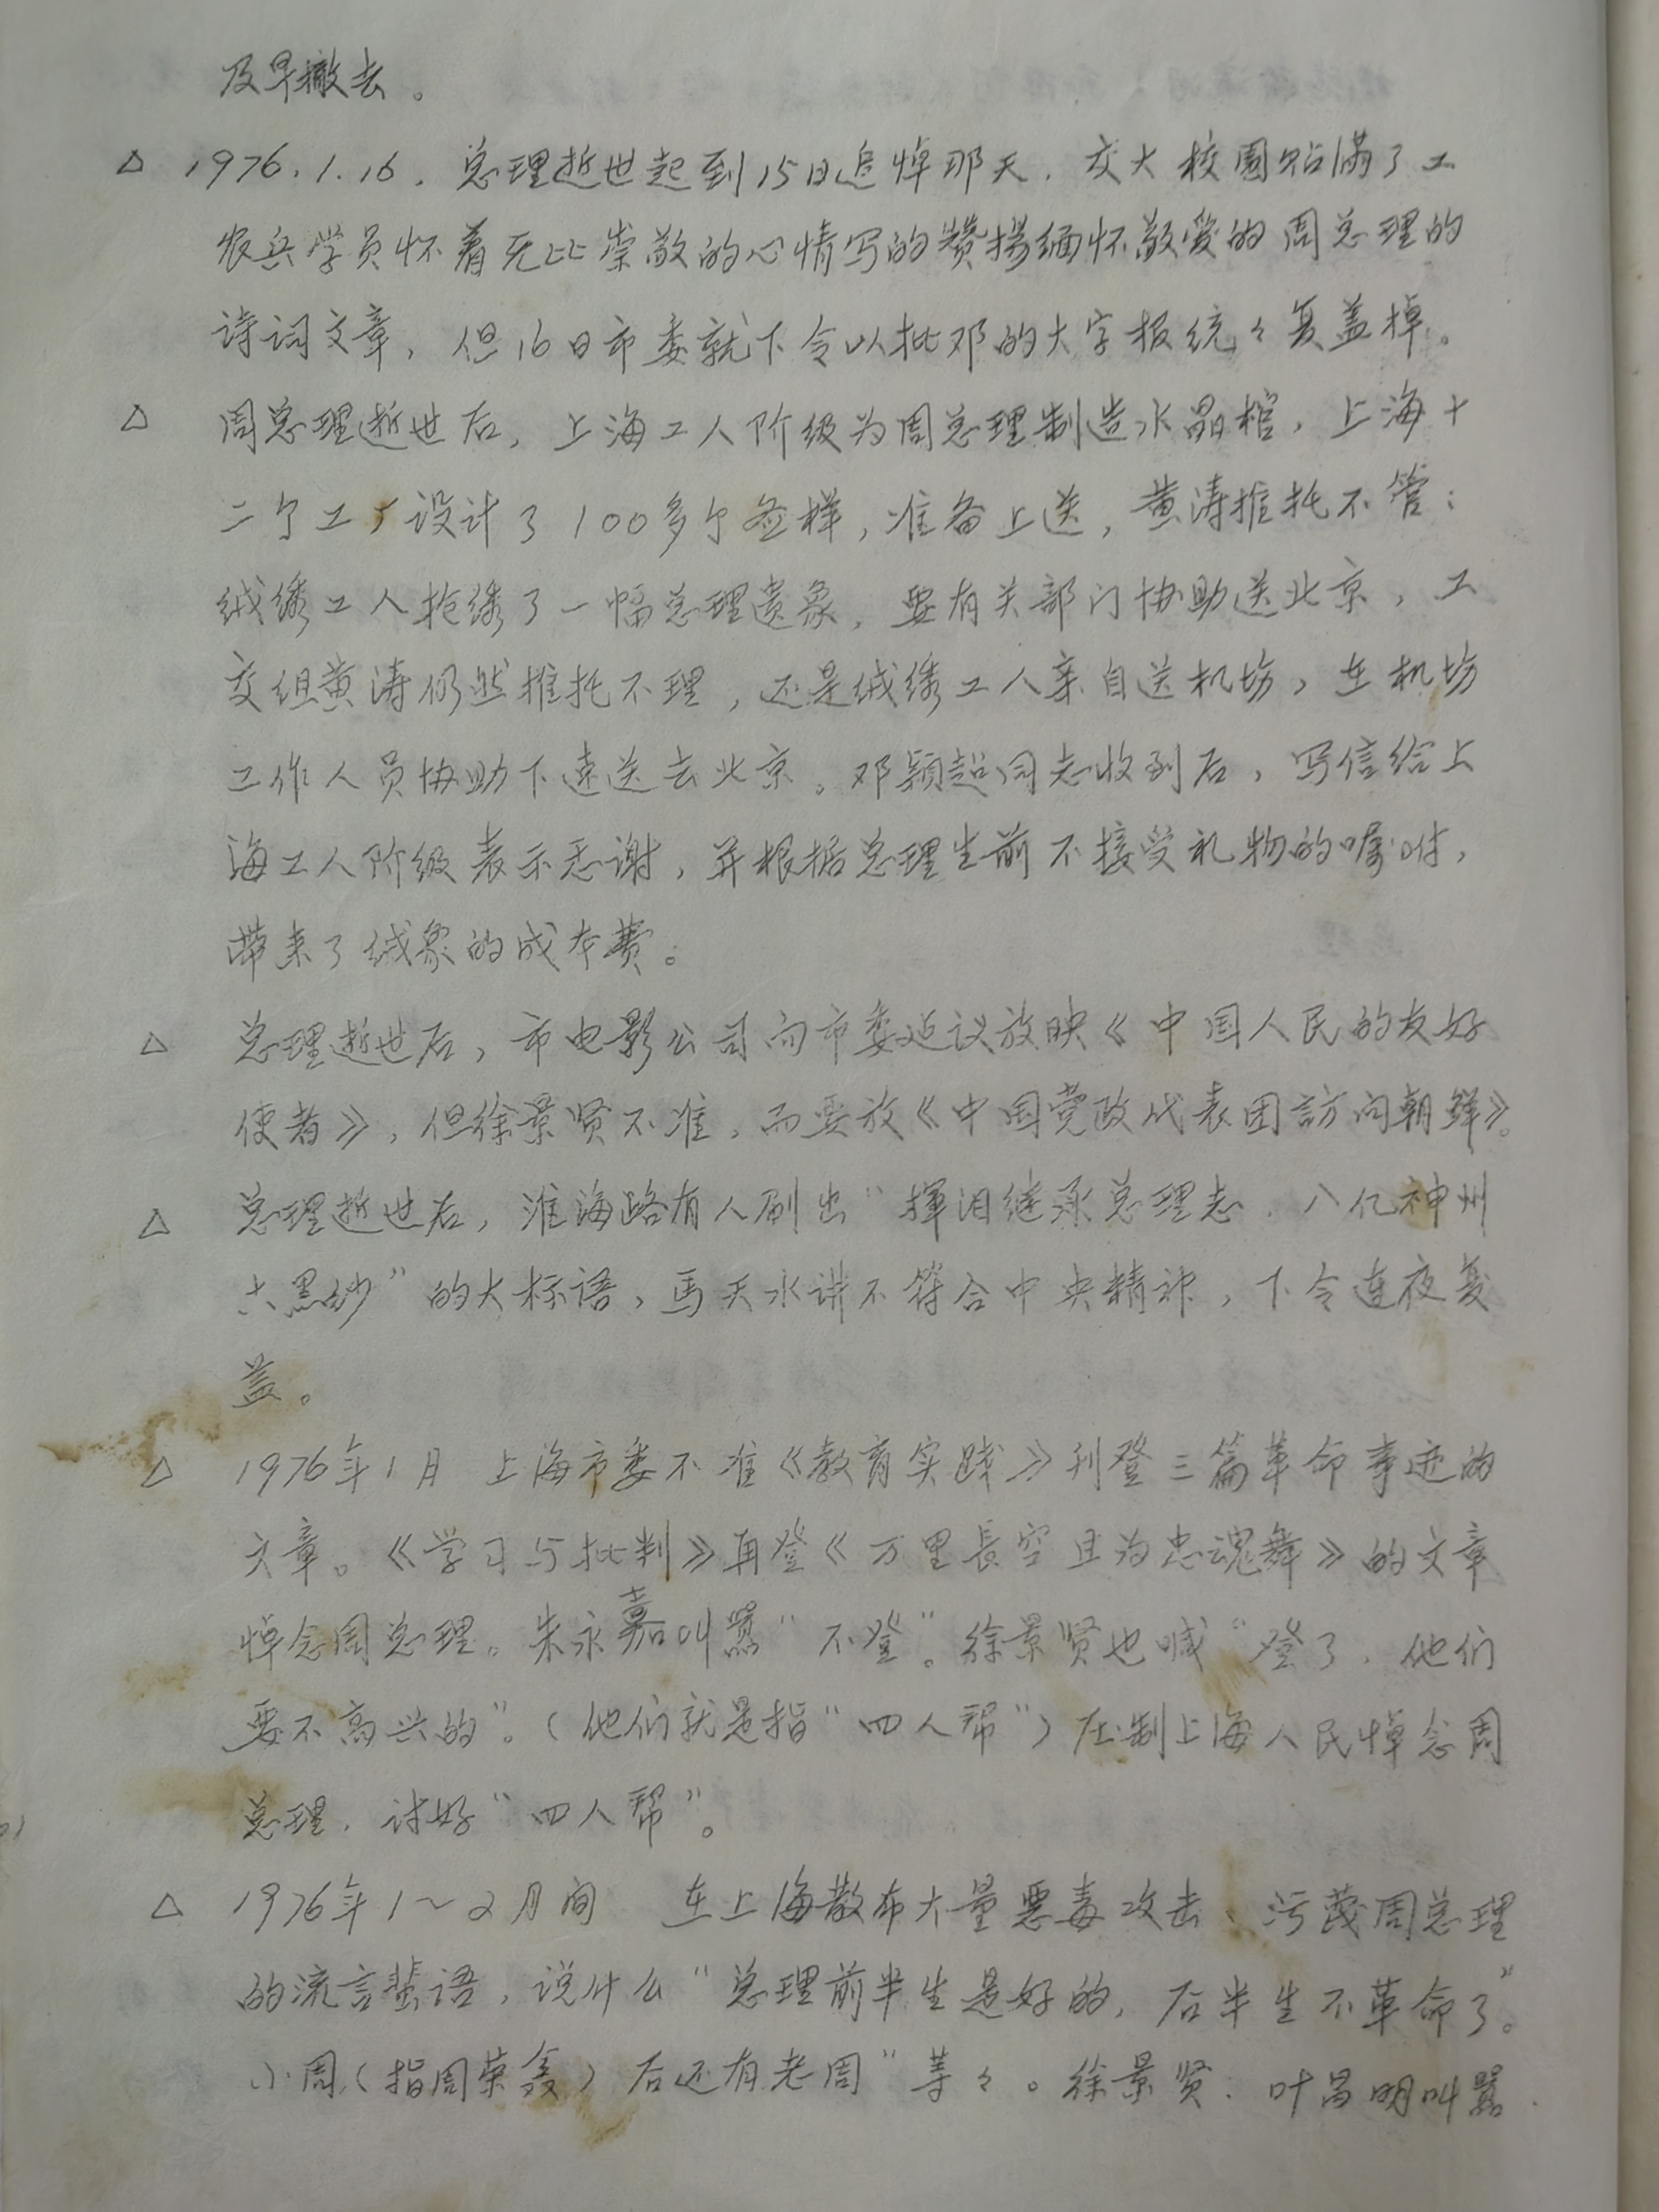 及早撤去。
△ 1976.1.16. 总理逝世起到15日追悼那天，交大校園贴满了工
农兵学员怀着无比崇敬的心情写的赞揚缅怀敬爱的周总理的
诗词文章，但16日市委就下令以批邓的大字报统々复盖掉。
△ 周总理逝世后，上海工人阶级为周总理制造水晶棺，上海十
二个工厂设计了100多个盒样，准备上送，黄涛推托不管；
绒绣工人抢绣了一幅总理遗象，要有关部门协助送北京，工
交组黄涛仍然推托不理，还是绒绣工人亲自送机场，在机场
工作人员协助下速送去北京。邓颖超同志收到后，写信给上
海工人阶级表示感谢，并根据总理生前不接受礼物的嘱咐，
带来了绒象的成本费。
△ 总理逝世后，市电影公司向市委建议放映《中国人民的友好
使者》，但徐景贤不准，而要放《中国党政代表团訪问朝鲜》。
△ 总理逝世后，淮海路有人刷出“揮泪继承总理志，八亿神州
六黑纱”的大标语，馬天水讲不符合中央精神，下令连夜复
盖。
△ 1976年1月 上海市委不准《教育实践》刊登三篇革命事迹的
文章。《学习与批判》再登《万里長空且为忠魂舞》的文章
悼念周总理。朱永嘉叫嚣“不登”。徐景贤也喊“登了，他们
要不高兴的”。（他们就是指“四人帮”）压制上海人民悼念周
总理，讨好“四人帮”。
△ 1976年1～2月间 在上海散布大量恶毒攻击、污蔑周总理
的流言蜚语，说什么“总理前半生是好的，后半生不革命了”。
小周（指周荣鑫）后还有老周”等々。徐景贤、叶昌明叫嚣